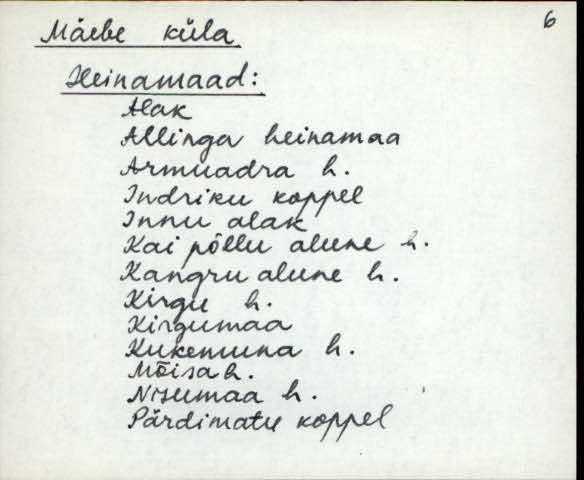 6
Mäebe küla
Heinamaad:
Alak
Allinga heinamaa
Armuadra h.
Indriku koppel
Innu alak
Kai põllu alune h.
Kangru alune h.
Kirgu h.
Kirgumaa
Kukemuna h.
Mõisa h.
Nisumaa h.
Pärdimatu koppel